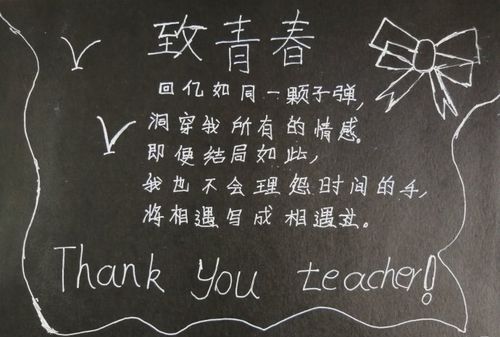 致青春
回亿如同一颗子弹,
洞穿我所有的情感。
即便结局如此,
我也不会理怨时间的手,
将相遇写成相遇
Thank you teacher!